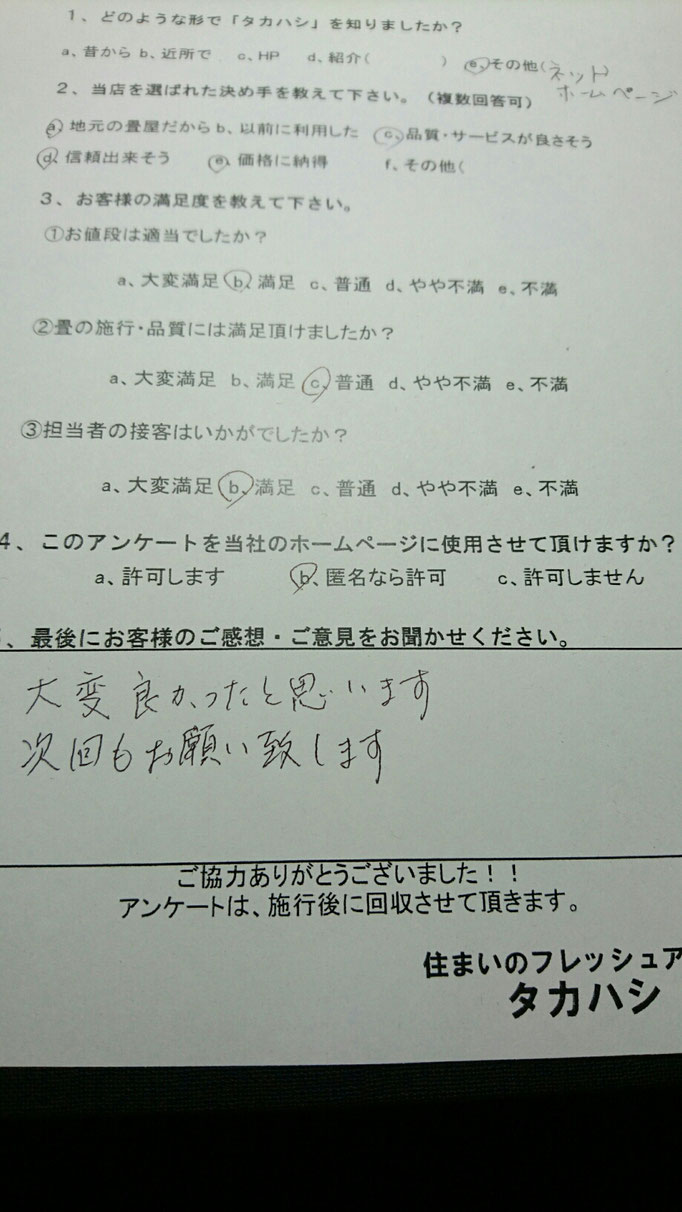 1、どのような形で「タカハシ」を知りましたか？
a、昔から b、近所で c、HP d、紹介(　　　　) e、その他(ネット
ホームページ
2、当店を選ばれた決め手を教えて下さい。（複数回答可）
a、地元の畳屋だから b、以前に利用した c、品質・サービスが良さそう
d、信頼出来そう e、価格に納得 f、その他(
3、お客様の満足度を教えて下さい。
①お値段は適当でしたか？
a、大変満足 b、満足 c、普通 d、やや不満 e、不満
②畳の施行・品質には満足頂けましたか？
a、大変満足 b、満足 c、普通 d、やや不満 e、不満
③担当者の接客はいかがでしたか？
a、大変満足 b、満足 c、普通 d、やや不満 e、不満
4、このアンケートを当社のホームページに使用させて頂けますか？
a、許可します b、匿名なら許可 c、許可しません
、最後にお客様のご感想・ご意見をお聞かせください。
大変良かったと思います
次回もお願い致します
ご協力ありがとうございました！！
アンケートは、施行後に回収させて頂きます。
住まいのフレッシュア
タカハシ